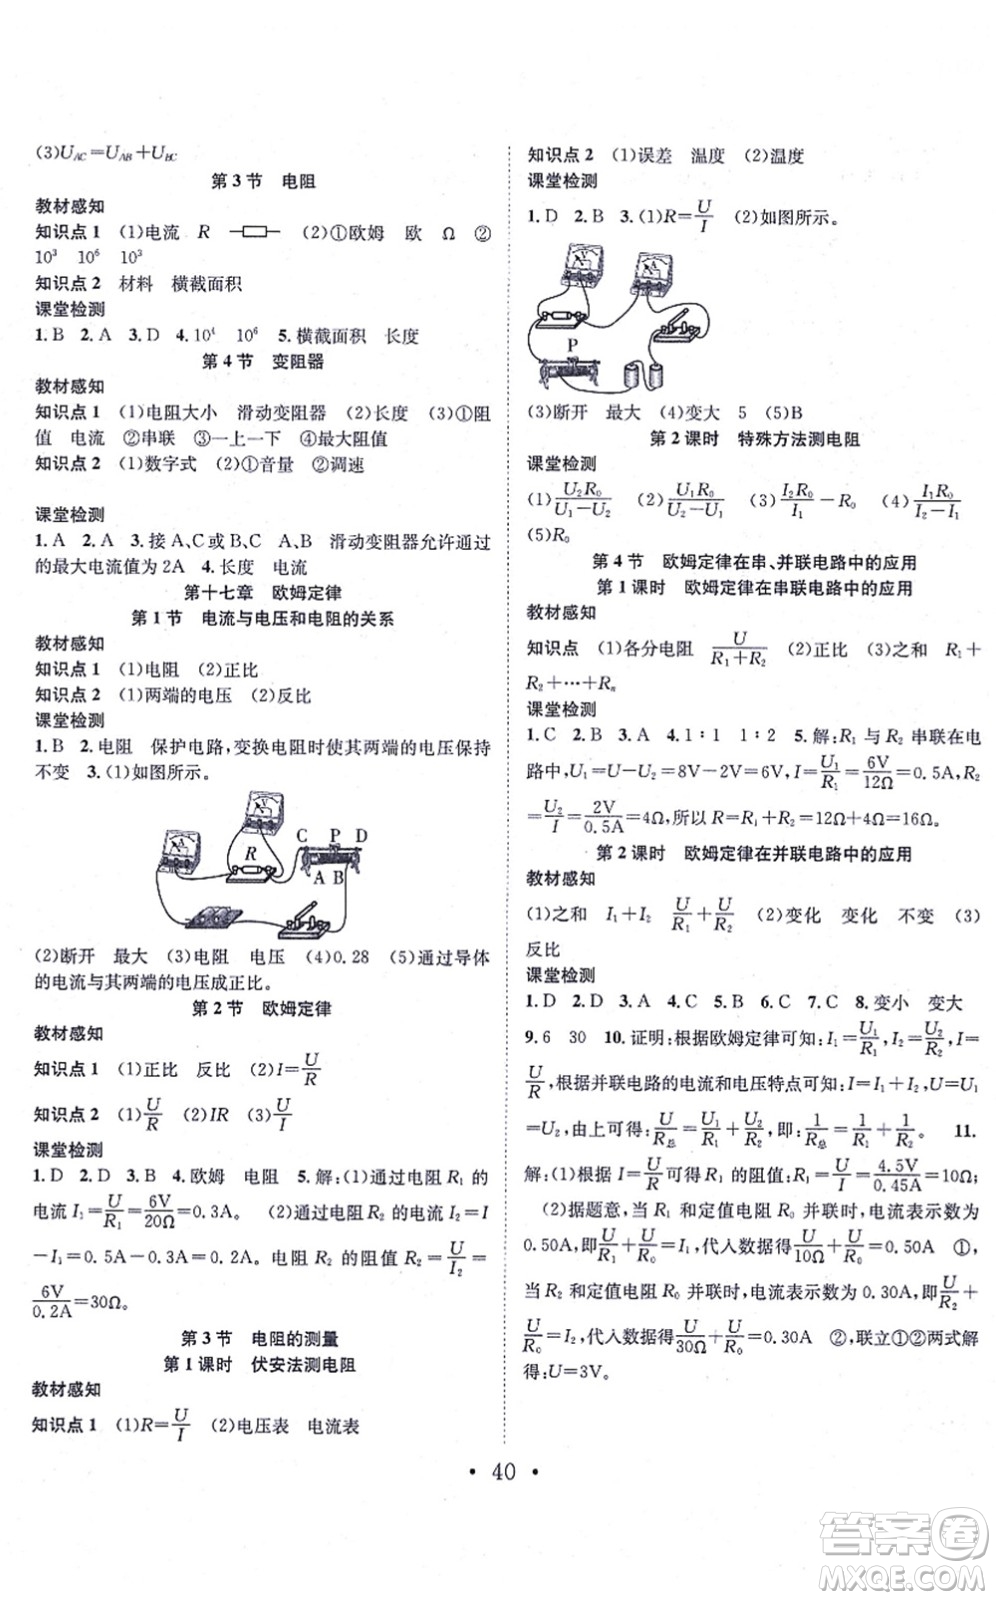 (3)U_AC=U_AB+U_BC
第3节 电阻
教材感知
知识点1 (1)电流 R (2)①欧姆 欧 Ω ②
10³ 10⁶ 10³
知识点2 材料 横截面积
课堂检测
1. B 2. A 3. D 4. 10⁴ 10⁶ 5. 横截面积 长度
第4节 变阻器
教材感知
知识点1 (1)电阻大小 滑动变阻器 (2)长度 (3)①阻
值 电流 ②串联 ③一上一下 ④最大阻值
知识点2 (1)数字式 (2)①音量 ②调速
课堂检测
1. A 2. A 3. 接A、C或B、C A、B 滑动变阻器允许通过
的最大电流值为2A 4. 长度 电流
第十七章 欧姆定律
第1节 电流与电压和电阻的关系
教材感知
知识点1 (1)电阻 (2)正比
知识点2 (1)两端的电压 (2)反比
课堂检测
1. B 2. 电阻 保护电路,变换电阻时使其两端的电压保持
不变 3. (1)如图所示。
V
C P D
R
A B
(2)断开 最大 (3)电阻 电压 (4)0.28 (5)通过导体
的电流与其两端的电压成正比。
第2节 欧姆定律
教材感知
知识点1 (1)正比 反比 (2)I=U/R
知识点2 (1)U/R (2)IR (3)U/I
课堂检测
1. D 2. D 3. B 4. 欧姆 电阻 5. 解:(1)通过电阻R₁的
电流I₁=U/R₁=6V/20Ω=0.3A。 (2)通过电阻R₂的电流I₂=I
-I₁=0.5A-0.3A=0.2A。电阻R₂的阻值R₂=U/I₂=
6V/0.2A=30Ω。
第3节 电阻的测量
第1课时 伏安法测电阻
教材感知
知识点1 (1)R=U/I (2)电压表 电流表
知识点2 (1)误差 温度 (2)温度
课堂检测
1. D 2. B 3. (1)R=U/I (2)如图所示。
V
A
P
(3)断开 最大 (4)变大 5 (5)B
第2课时 特殊方法测电阻
课堂检测
(1)U₂R₀/(U₁-U₂) (2)U₁R₀/(U₂-U₁) (3)I₂R₀/I₁-R₀ (4)I₁R₀/(I₂-I₁)
(5)R₀
第4节 欧姆定律在串、并联电路中的应用
第1课时 欧姆定律在串联电路中的应用
教材感知
知识点 (1)各分电阻 U/(R₁+R₂) (2)正比 (3)之和 R₁+
R₂+…+Rₙ
课堂检测
1. C 2. B 3. A 4. 1∶1 1∶2 5. 解:R₁与R₂串联在电
路中,U₁=U-U₂=8V-2V=6V,I=U₁/R₁=6V/12Ω=0.5A,R₂
=U₂/I=2V/0.5A=4Ω,所以R=R₁+R₂=12Ω+4Ω=16Ω。
第2课时 欧姆定律在并联电路中的应用
教材感知
(1)之和 I₁+I₂ U/R₁+U/R₂ (2)变化 变化 不变 (3)
反比
课堂检测
1. D 2. D 3. A 4. C 5. C 6. D 7. C 8. 变小 变大
9. 6 30 10. 证明:根据欧姆定律可知:I₁=U₁/R₁,I₂=U₂/R₂,I=
U/R,根据并联电路的电流和电压特点可知:I=I₁+I₂,U=U₁
=U₂,由上可得:U/R总=U₁/R₁+U₂/R₂,即:1/R总=1/R₁+1/R₂。 11.
解:(1)根据I=U/R可得R₁的阻值:R₁=U/I=4.5V/0.45A=10Ω;
(2)据题意,当R₁和定值电阻R₀并联时,电流表示数为
0.50A,即U/R₁+U/R₀=I₁,代入数据得:U/10Ω+U/R₀=0.50A ①,
当R₂和定值电阻R₀并联时,电流表示数为0.30A,即U/R₂
+U/R₀=I₂,代入数据得:U/30Ω+U/R₀=0.30A ②,联立①②两式解
得:U=3V。
· 40 ·
答案卷
MXQE.COM